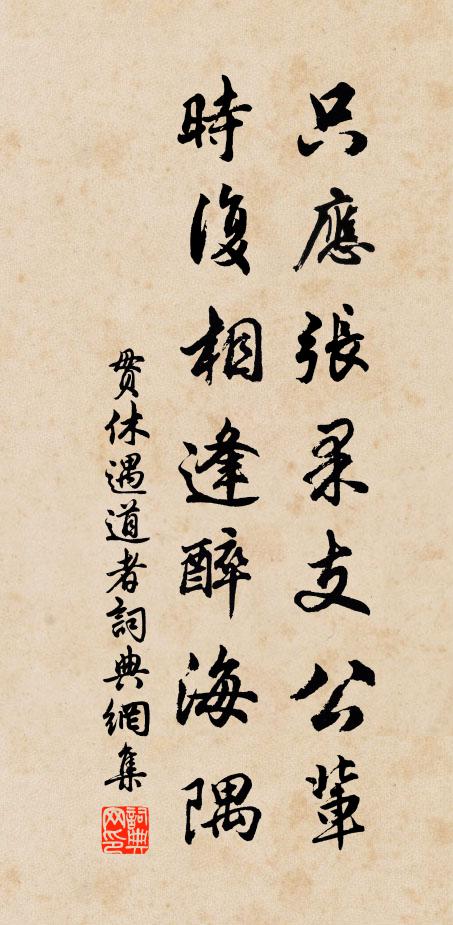 只應張果支公輩
時復相逢醉海隅
貫休遇道者詞典網集
詞典网印